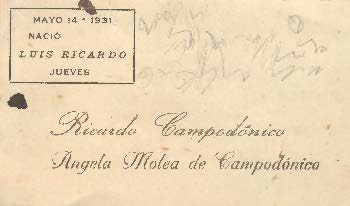 MAYO 14 - 1931
NACIÓ
LUIS RICARDO
JUEVES
Ricardo Campodónico
Angela Molea de Campodónico